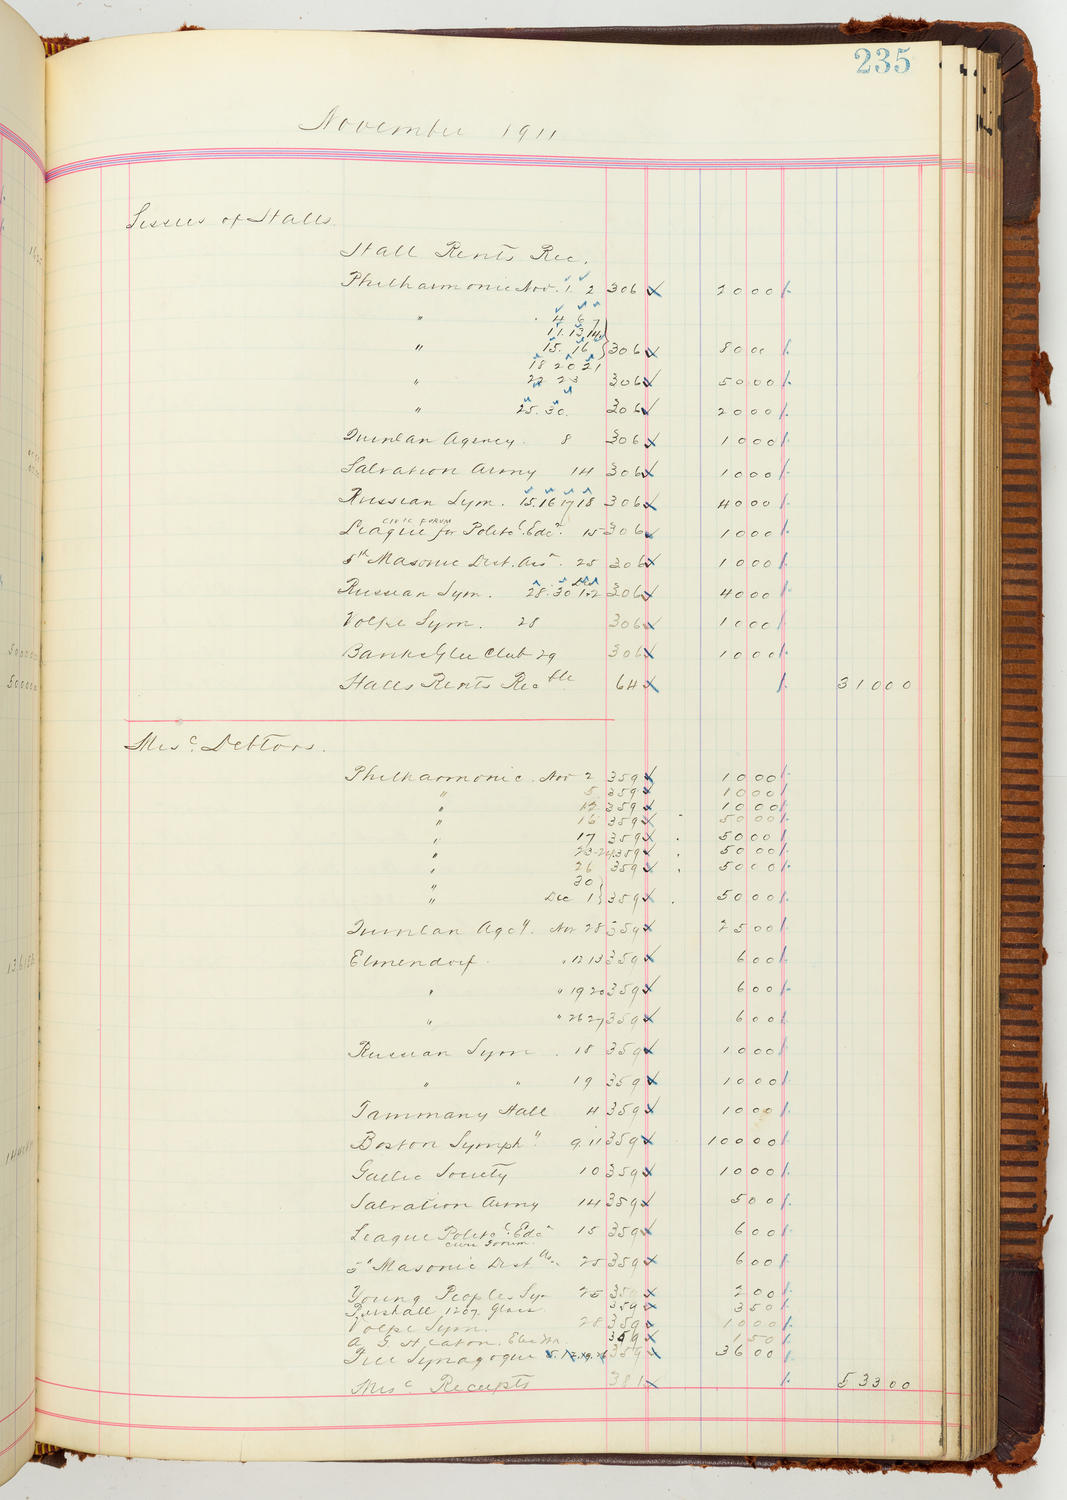 235
November 1911
Lessees of Halls.
Hall Rents Rec.
Philharmonic Nov. 1. 2 306 2000
" 4 6 7
11. 13. 14
" 15. 16 306 8000
18 20 21
" 22 23 306 5000
" 25. 30. 306 2000
Quinlan Agency. 8 306 1000
Salvation Army 14 306 1000
Russian Sym. 15. 16 17 18 306 4000
CIVIC FORUM
League for Polit.c Edc.n 15 306 1000
5th Masonic Dist. Ass.n 25 306 1000
Dec
Russian Sym. 28. 30 1-2 306 4000
Volpe Sym. 28 306 1000
Banks Glee Club 29 306 1000
Halls Rents Rec ble 64 31000
Misc. Debtors.
Philharmonic. Nov 2 359 1000
" 5 359 1000
" 12 359 1000
" 16 359 5000
" 17 359 5000
" 23-24 359 5000
" 26 359 5000
" 30
" Dec 1 359 5000
Quinlan Agcy. Nov 28 359 2500
Elmendorf " 12 13 359 600
" " 19 20 359 600
" " 26 27 359 600
Russian Sym 18 359 1000
" " 19 359 1000
Tammany Hall 4 359 1000
Boston Symphy 9. 11 359 10000
Gaelic Society 10 359 1000
Salvation Army 14 359 500
League Polit.c Edcn 15 359 600
Civic Forum.
5th Masonic Dist As. 25 359 600
Young Peoples Sym 25 359 200
359 350
Volpe Sym. 28 359 1000
A. G. Heaton. 359 150
Free Synagogue 5. 12. 19. 26 359 3600
Misc Receipts 381 53300